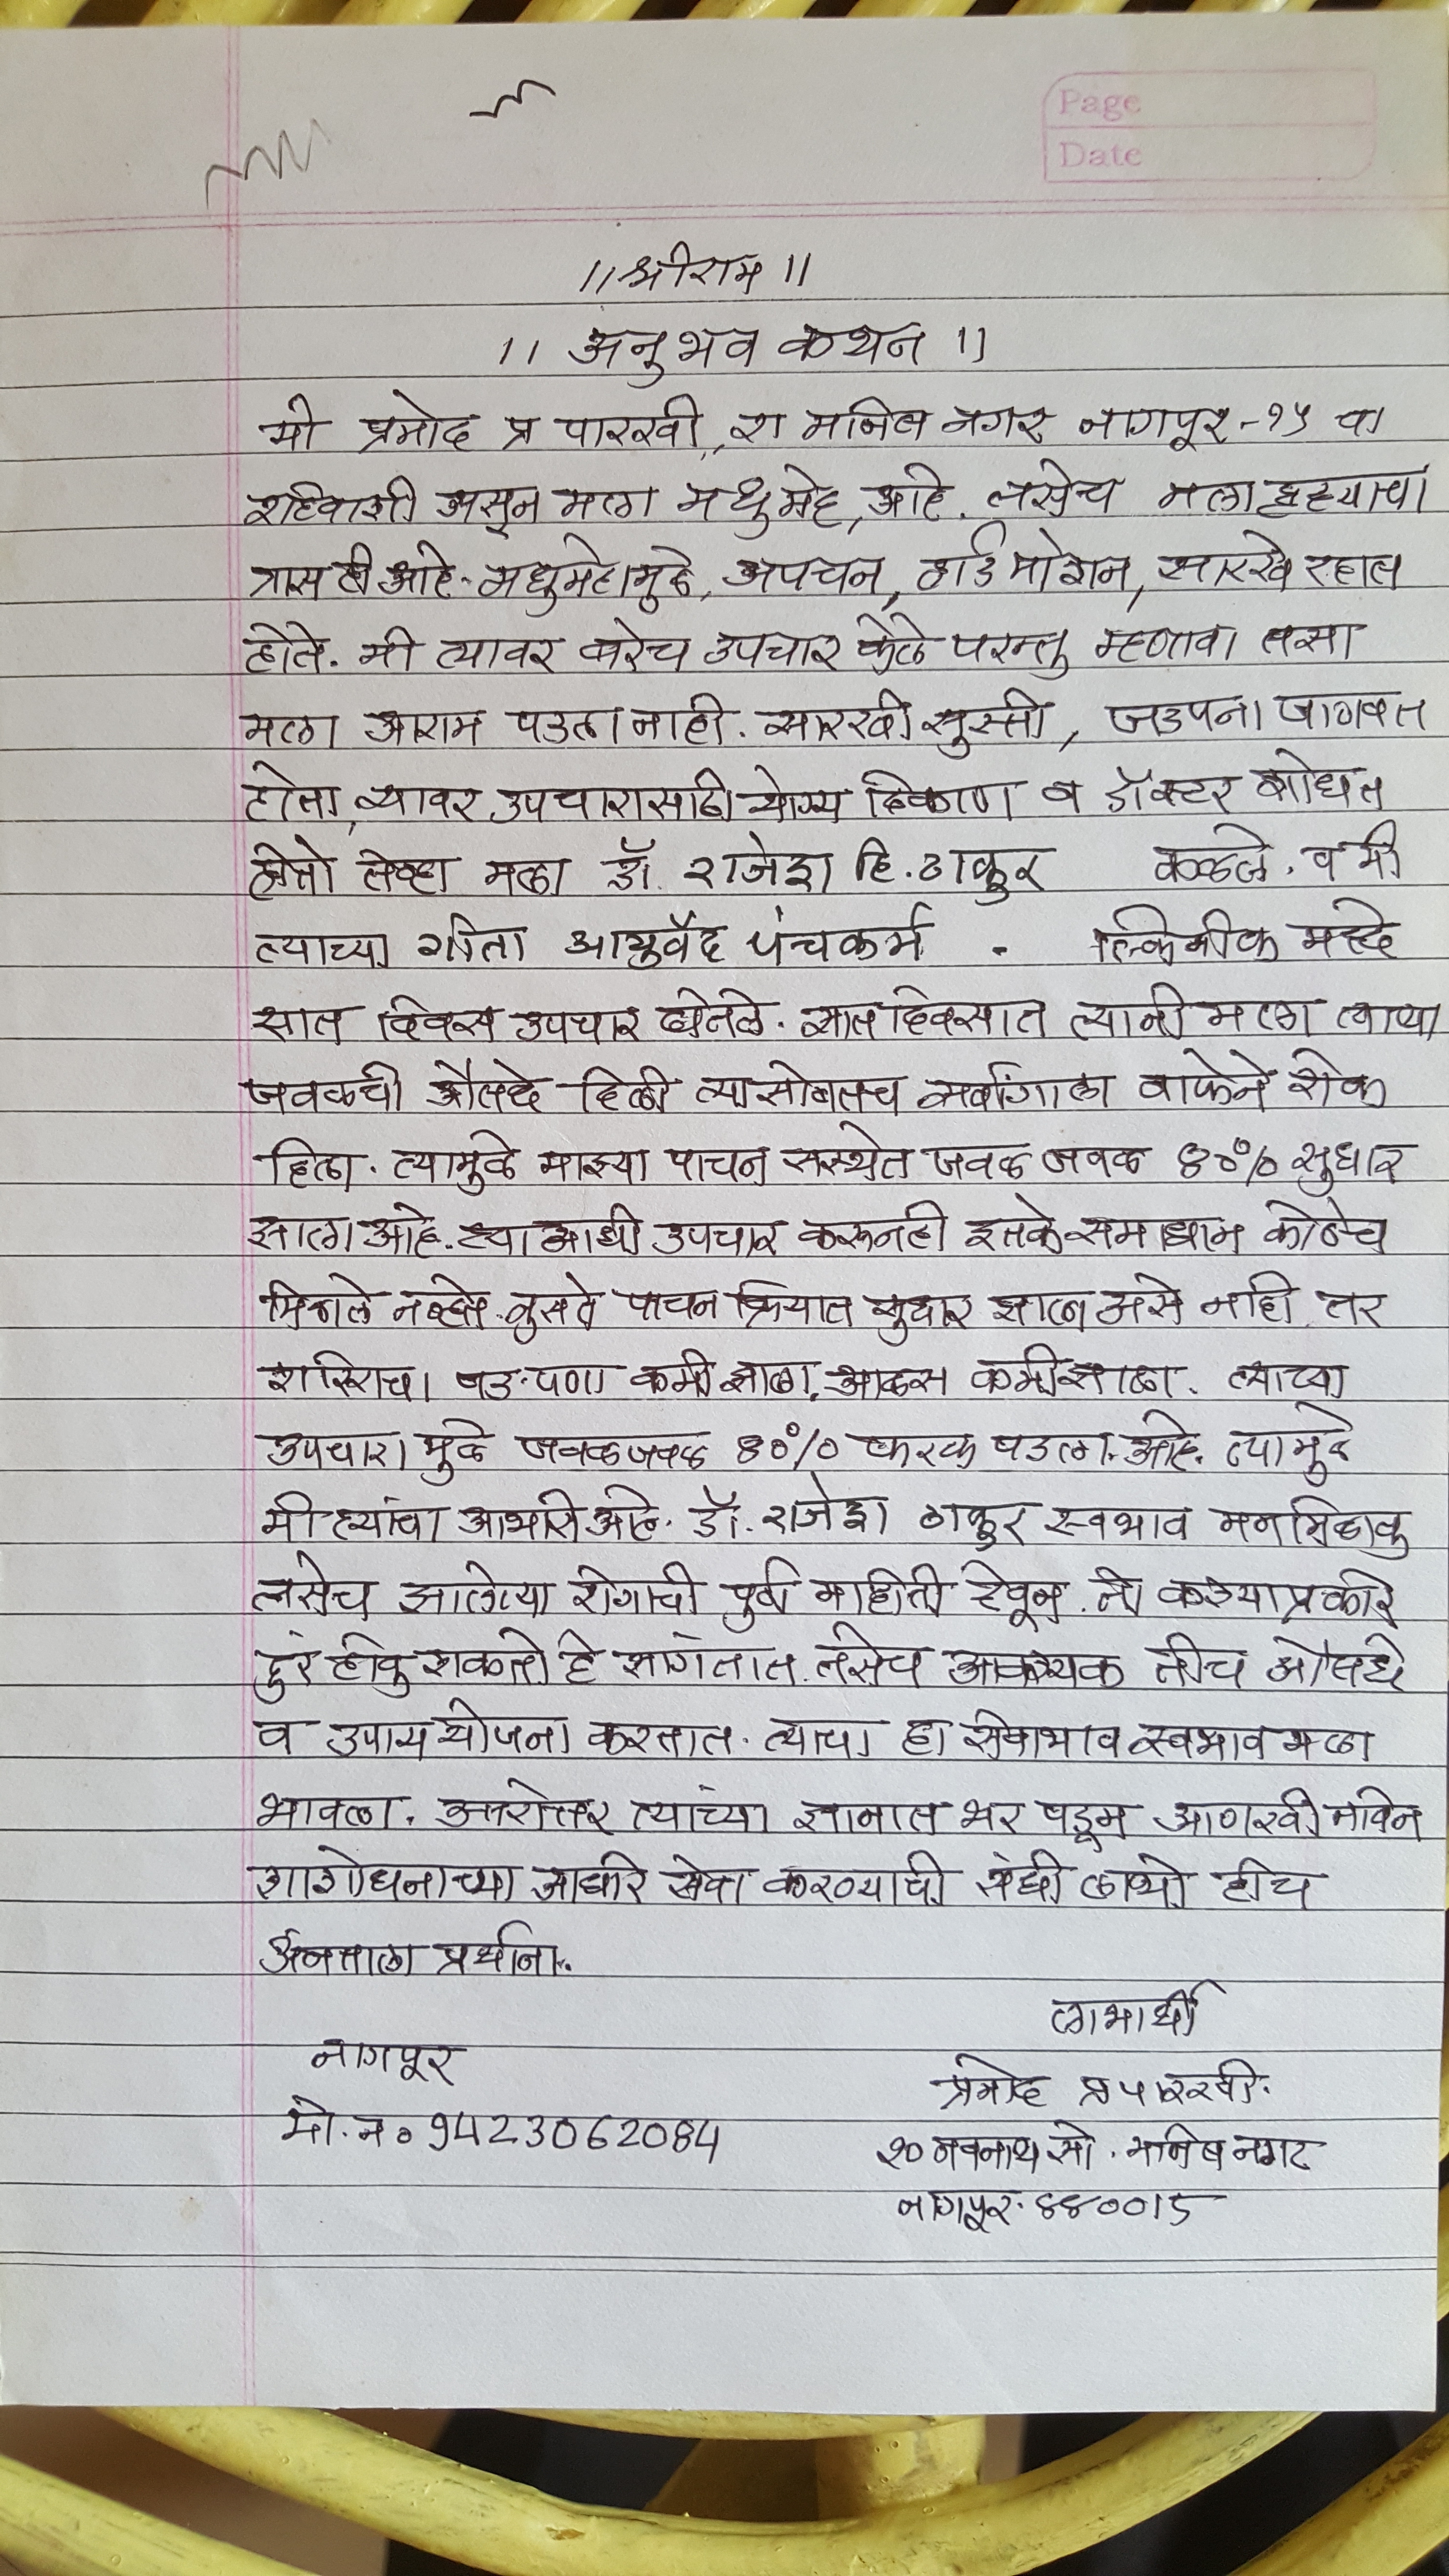 Page
Date
।।श्रीराम ।।
।। अनुभव कथन ।।
मी प्रमोद प्र पारखी, रा मनिष नगर नागपूर-१५ चा
रहिवाशी असून मला मधुमेह, आहे. तसेच मला ह्रदयाचा
त्रास ही आहे. मधुमेहामुळे, अपचन, हार्ड मोशन, सारखे रहात
होते. मी त्यावर बरेच उपचार केले परन्तु म्हणावा तसा
मला आराम पडला नाही. सारखी सुस्ती, जडपना जाणवत
होता, त्यावर उपचारासाठी योग्य ठिकाण व डॉक्टर शोधत
होतो तेव्हा मला डॉ. राजेश हि. ठाकुर कळले. व मी
त्याच्या गीता आयुर्वेद पंचकर्म . क्लिनीक मद्दे
सात दिवस उपचार घेतले. सात दिवसात त्यानी मला त्याच्या
जवळची औषधे दिली त्यासोबतच सर्वांगाला वाफेने शेक
दिला. त्यामुळे माझ्या पाचन सस्थेत जवळ जवळ ४०% सुधार
झाला आहे. ह्या आधी उपचार करूनही इतके समाधान कोठेच
मिळाले नव्हते. नुसते पाचन क्रियात सुधार झाला असे नाही तर
शरिराचा जड-पणा कमी झाला. आळस कमी झाला. त्याच्या
उपचारा मुळे जवळजवळ ४०% फरक पडला. आहे. त्यामुळे
मी त्यांचा आभारी आहे. डॉ. राजेश ठाकुर स्वभाव मनमिळाकु
तसेच झालेल्या रोगाची पुर्व माहिती देवून. तो कश्याप्रकारे
दुर होवु शकतो हे सागंतात. तसेच आवश्यक तीच औषधे
व उपाय योजना करतात. त्याचा हा सेवाभाव स्वभाव मला
भावला. उत्तरोत्तर त्यांच्या ज्ञानात भर पडून आणखी नविन
शाशोधनाच्या आधारे सेवा करण्याची संधी लाभो हीच
अनंताला प्रर्थाना.
लाभार्थी
नागपूर
प्रमोद प्र पारखी.
मो. न० 9423062084
२० नवनाथ सो. मनिष नगर
नागपूर. ४४००15